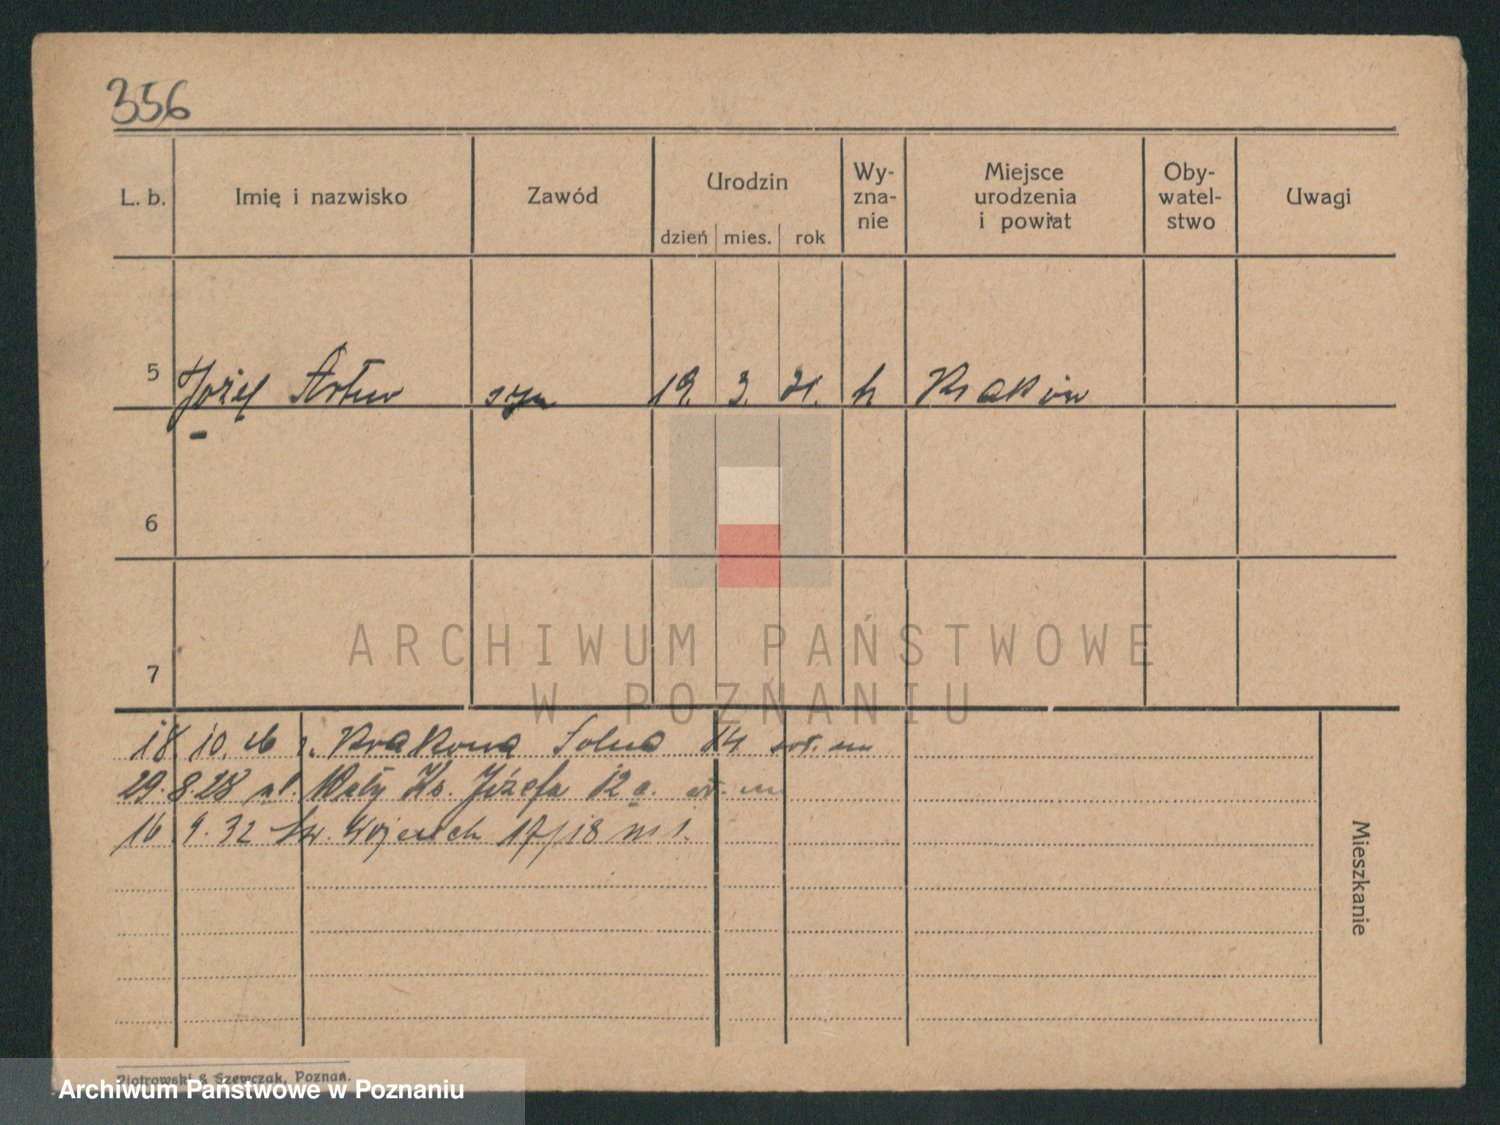 356
L. b. Imię i nazwisko Zawód Urodzin dzień mies. rok Wy-zna-nie Miejsce urodzenia i powiat Oby-watel-stwo Uwagi
5 Józef Artur syn 19. 3. 21. k Kraków
6
7
ARCHIWUM PAŃSTWOWE
W POZNANIU
18. 10. 26 z. Krakowa Solna 14
29. 8. 28 Wały Ks. Józefa 12 a.
16. 9. 32 św. Wojciech 17/18 m 1.
Mieszkanie
Piotrowski & Szewczak, Poznań.
Archiwum Państwowe w Poznaniu